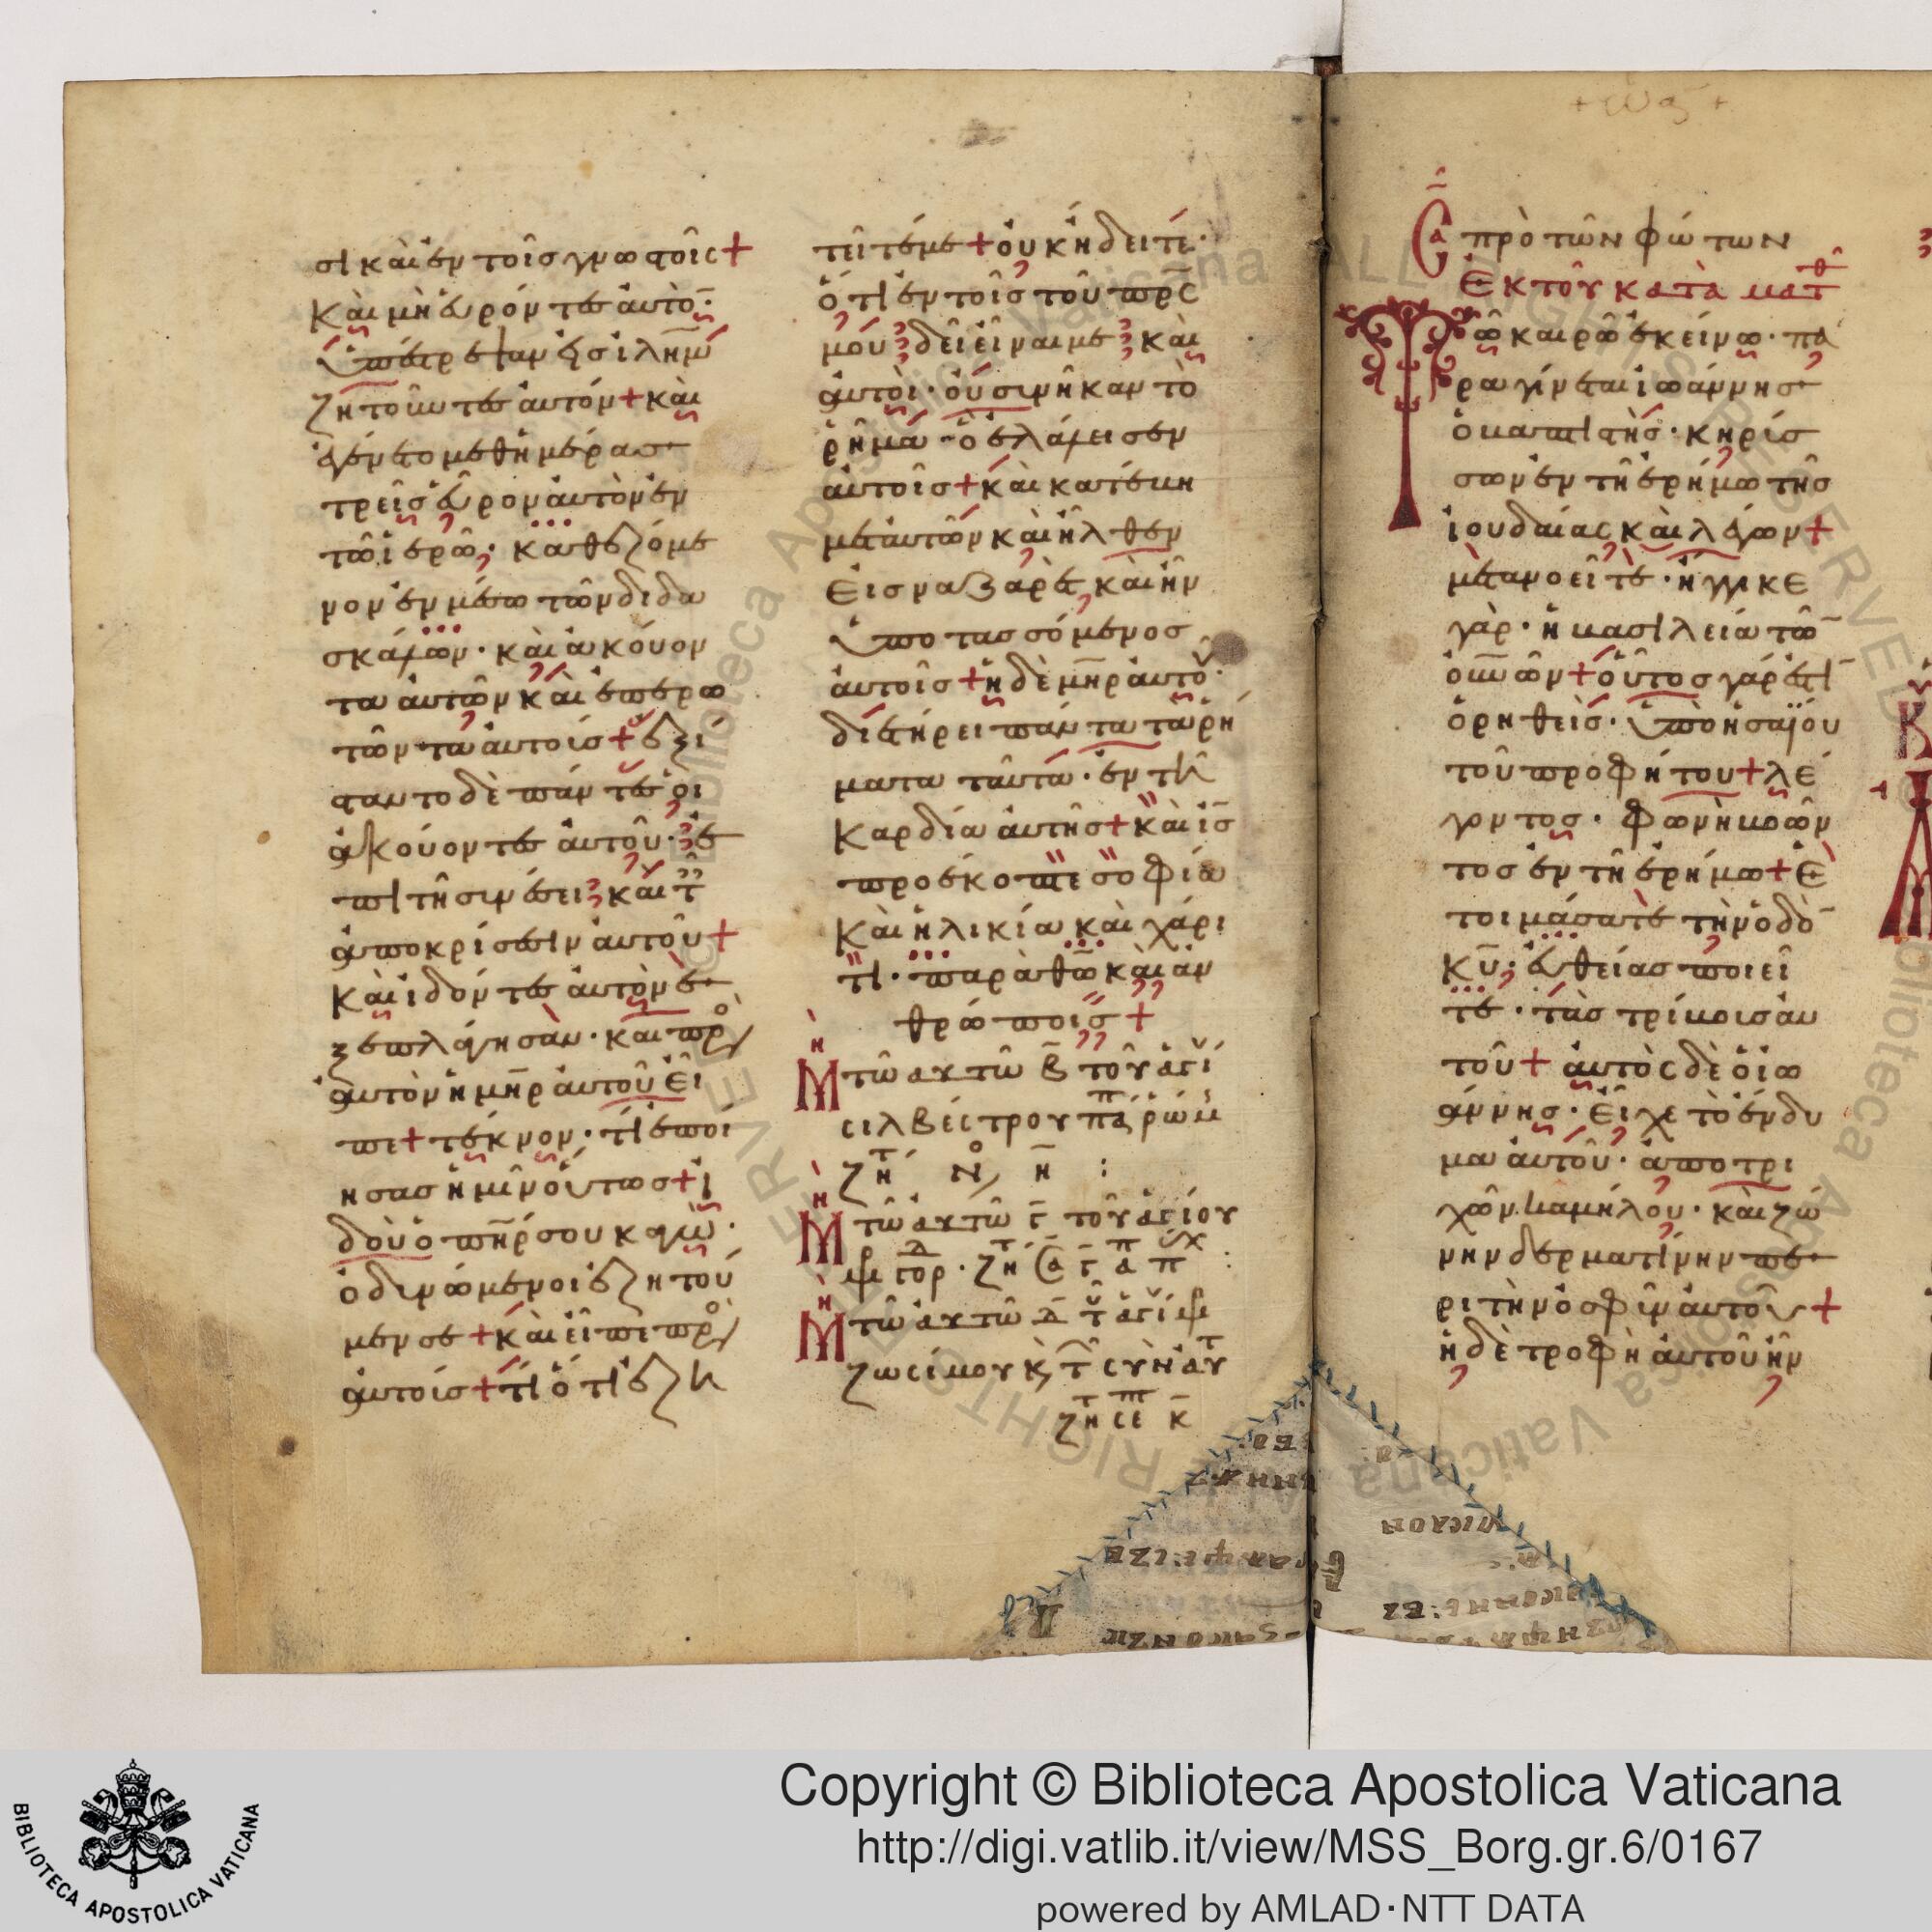 σι καὶ ἐν τοῖς γνωστοῖς +
Καὶ μὴ εὑρόντες αὐτὸ̄·
ὑπέστρεψαν εἰς ἱλη̄μ
ζητοῦντες αὐτόν + καὶ
ἐγένετο μεθ ἡμέρας
τρεῖς εὗρον αὐτὸν ἐν
τῶ ἱερῶ, καθεζόμε
νον ἐν μέσω τῶν διδα
σκάλων · καὶ ἀκούον
τα αὐτῶν καὶ ἐπερω
τῶντα αὐτοίς + ἐξί
σταντο δὲ πάντες οἱ
ἀκούοντες αὐτοῦ · ἐ
πὶ τῆ συνέσει καὶ τ̑
ἀποκρίσεσιν αὐτοῦ +
Καὶ ἰδόντες αὐτὸν ἐ
ξεπλάγησαν · καὶ πρὸ
αὐτὸν ἡ μη̄ρ αὐτοῦ εἶ
πε + τέκνον · τί ἐποί
ησας ἡμῖν οὕτως + ἰ
δοὺ ὁ πη̄ρ σου κἀγὼ ·
ὀδυνώμενοι ἐζητού
μεν σε + καὶ εἶπε πρὸ
αὐτοίς + τί ὅτι ἐζη
τεῖτέ με + οὐκ ἤδειτε ·
ὅτι ἐν τοῖς τοῦ πρ̄ς
μου δεῖ εἶναι με καὶ
αὐτοὶ · οὐ συνῆκαν τὸ
ῥῆμα · ὃ ἐλάλησεν
αὐτοῖς + καὶ κατέβη
μετ αὐτῶν καὶ ἦλθεν
Εἰς ναζαρὲτ, καὶ ἦν
ὑποτασσόμενος
αὐτοῖς + ἡ δὲ μη̄ρ αὐτοῦ ·
διετήρει πάντα τὰ ῥή
ματα ταῦτα · ἐν τῆ
Καρδία αὐτῆς + καὶ ις̄
προέκοπτε σοφία
Καὶ ἡλικία καὶ χάρι
τι · παρὰ θω̄ καὶ ἀν
θρώποις +
Μη τῶ αυτῶ β̄ τοῦ ἁγί
σιλβέςτρου πα ῥώμ
ζη ν, η̄ :
Μη τῶ αυτῶ γ̄ τοῦ ἁγίου
μ γορ · ζη σα γ̄ α π
Μη τῶ αυτῶ δ̄ τ ἁγί μ
ζωσίμου κ, τ̑ σὺν αυ
ζη σε κ̄
Σα πρὸ τῶν φώτων
Ἐκ τοῦ κατὰ ματθ
Τῶ καιρῶ ἐκείνω · πα
ραγίνεται ἰωάννης
ὁ βαπτιστὴς · κηρύσ
σων ἐν τῆ ἐρήμω τῆς
ἰουδαίας καὶ λέγων +
μετανοεῖτε · ἤγγικε
γὰρ · ἡ βασιλεία τῶ̄
οὐν̄ῶν + οὗτος γάρ ἐστὶ̄
ὁ ρηθεὶς · ὑπὸ ἡσαΐου
τοῦ προφήτου + λέ
γοντος · φωνὴ βοῶν
τος ἐν τῆ ἐρήμω + ἑ
τοιμάσατε τὴν ὁδὸ̄
κῡ, εὐθείας ποιεῖ
τε · τὰς τρίβοις αὐ
τοῦ + αὐτὸς δὲ ὁ ἰω
άννης · εἶχε τὸ ἔνδυ
μα αὐτοῦ · ἀπὸ τρι
χῶν καμήλου · καὶ ζώ
νην δερματίνην πε
ρι τὴν ὀσφὺν αὐτοῦ +
ἡ δὲ τροφὴ αὐτοῦ ἦν
BIBLIOTECA APOSTOLICA VATICANA
Copyright © Biblioteca Apostolica Vaticana
http://digi.vatlib.it/view/MSS_Borg.gr.6/0167
powered by AMLAD·NTT DATA